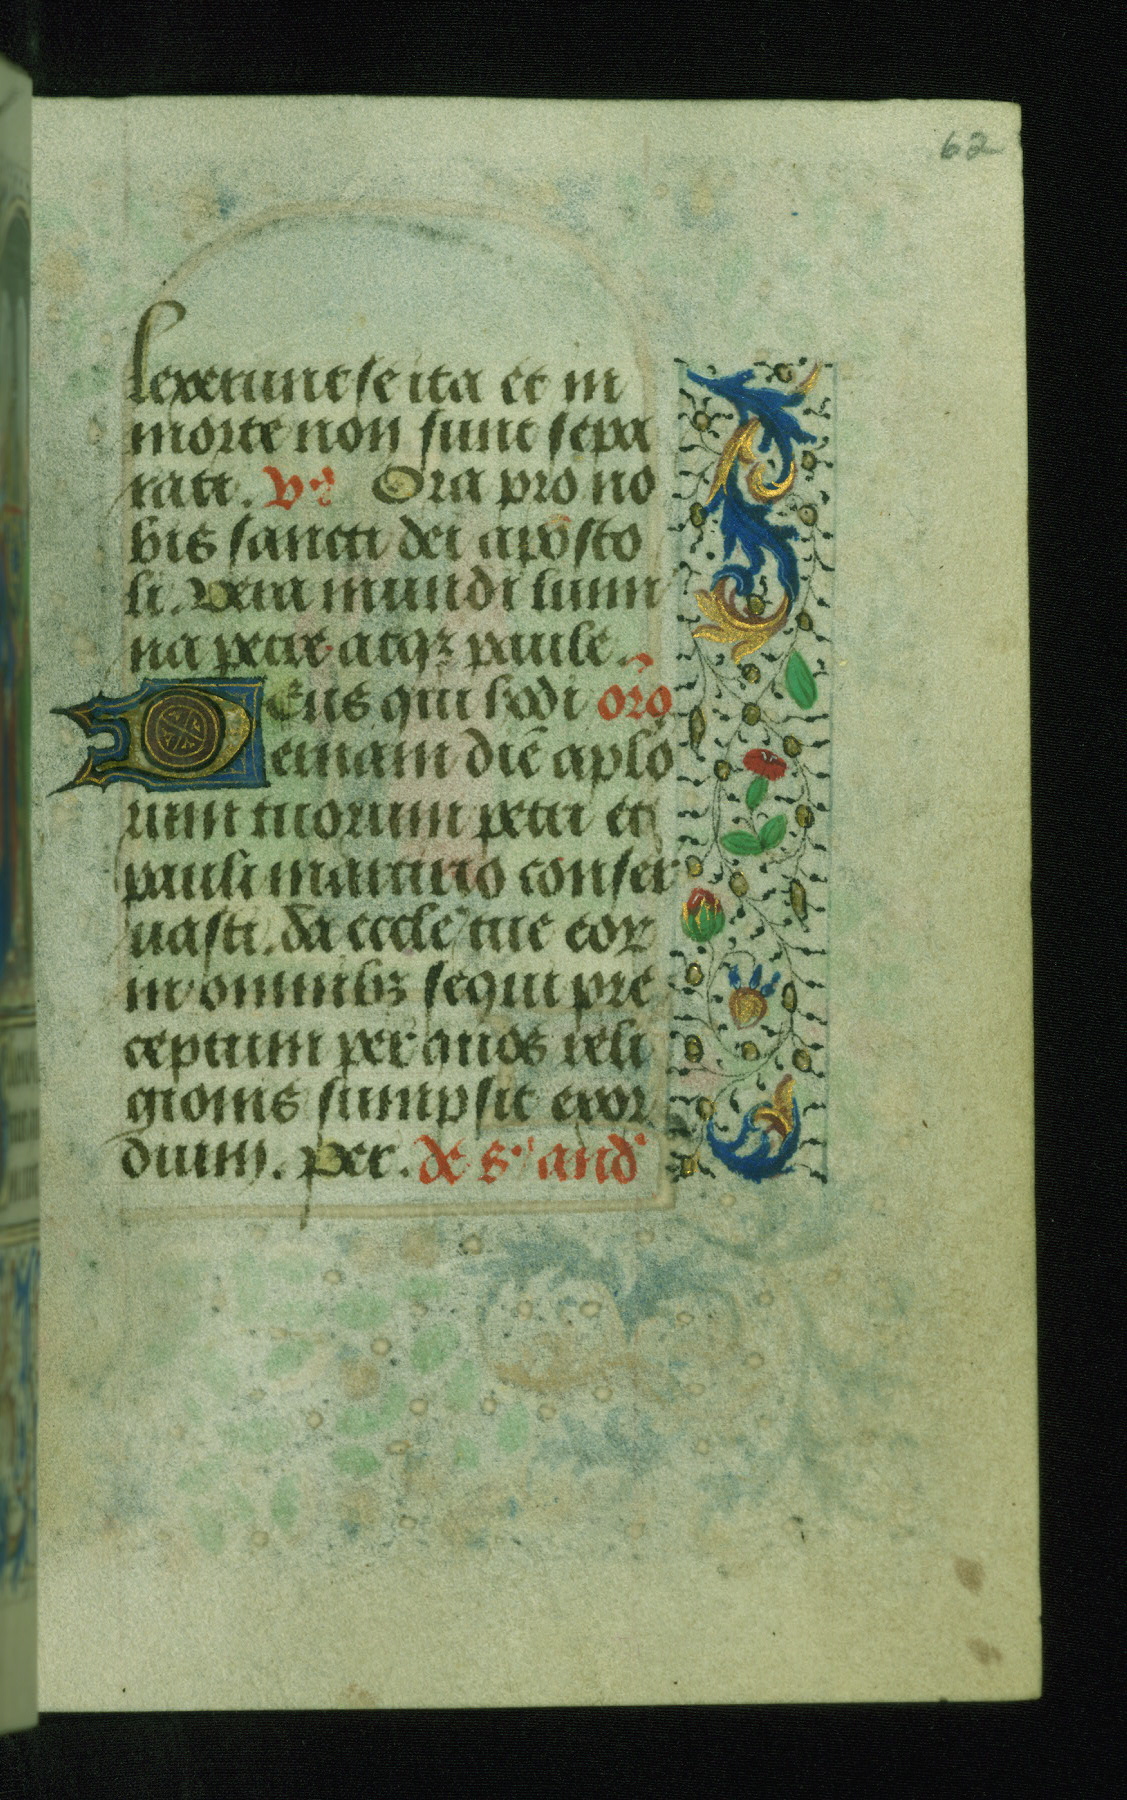 62
lexerunt se ita et in
morte non sunt sepa
rati. V Ora pro no
bis sancti dei aposto
li. Vera mundi lumi
na petre atqꝫ paule.
Deus qui hodi oro
ernam diē aplo
rum tuorum petri et
pauli martirio conser
uasti. da eccle tue eoꝝ
in omnibꝫ sequi pre
ceptum per quos reli
gionis sumpsit exor
dium. Per. de s. and